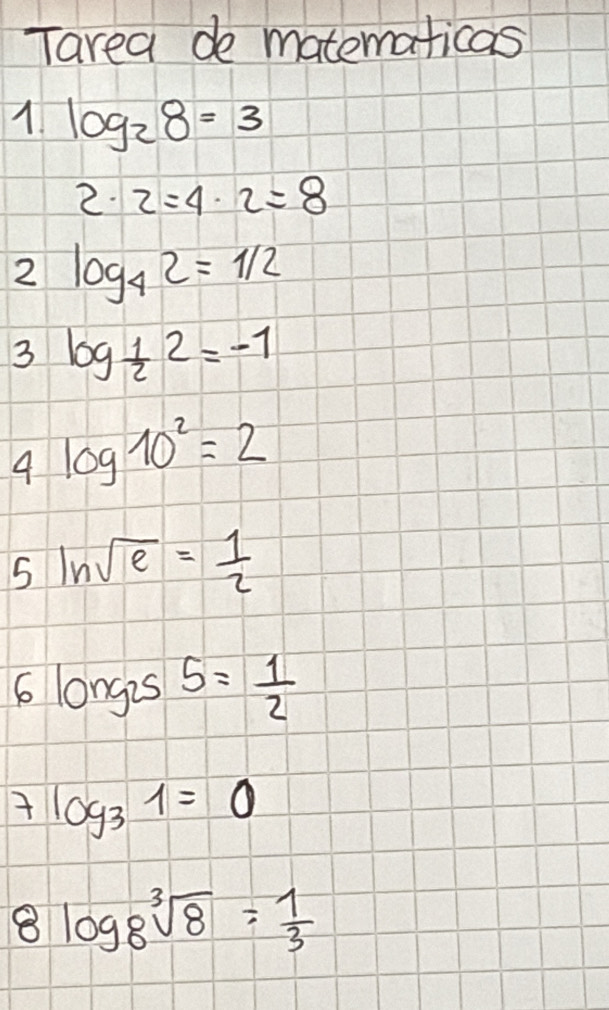 Tarea de matematicas
1. log₂8 = 3
2·2=4·2=8
2 log₄ 2 = 1/2
3 log½ 2 = -1
4 log 10² = 2
5 ln√e = 1/2
6 long₂₅ 5 = 1/2
7 log₃ 1 = 0
8 log₈ ∛8 = 1/3